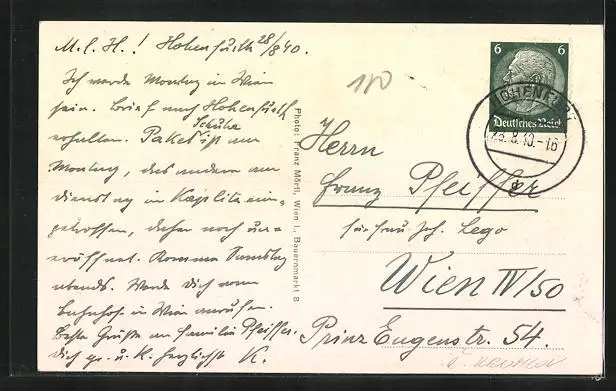 M. l. H.! Hohenfurth 28/8 40.
Ich werde Montag in Wien
sein. Brief nach Hohenfurth
erhalten. Paket Schuhe ist am
Montag, das andere am
Dienstag in Kaplitz ein-
getroffen, daher noch un-
eröffnet. Komme Samstag
abends. Werde dich vom
Bahnhof in Wien anrufen.
Beste Grüße an Familie Pfeiffer.
Dich gr. u. k. herzlichst K.
Photo: Franz Mörtl, Wien I., Bauernmarkt 8
6 6
Deutsches Reich
HOHENFURTH
8.40.-16
Herrn
Franz Pfeiffer
für Frau Joh. Lego
Wien IV/50
Prinz Eugenstr. 54.